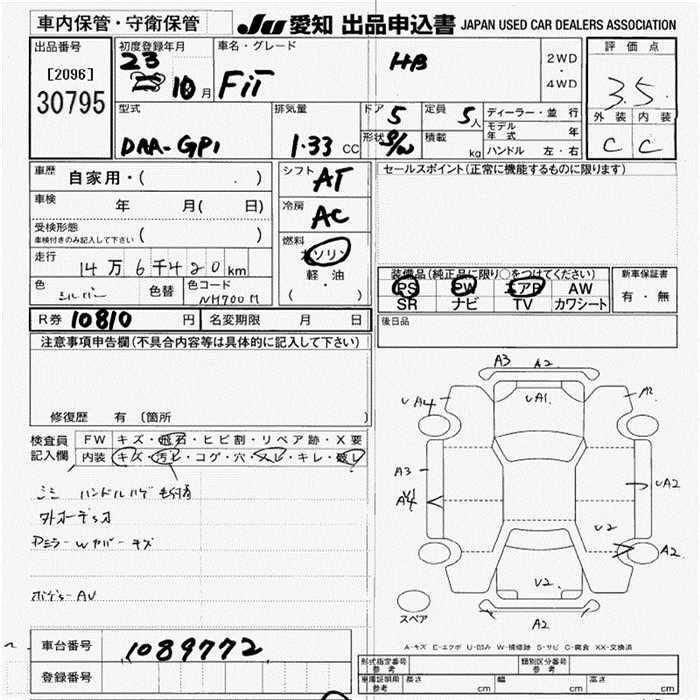 車内保管・守衛保管
JU 愛知 出品申込書 JAPAN USED CAR DEALERS ASSOCIATION
出品番号
[2096]
30795
初度登録年月
23
10 月
車名・グレード
FiT
HB
2WD
・
4WD
評価点
3.5
外装 内装
C C
型式
DAA-GP1
排気量
1.33 CC
ドア 5
形状 S/W
定員 5人
積載 kg
ディーラー・並行
モデル年式 年
ハンドル 左・右
車歴 自家用・( )
車検 年 月( 日)
受検形態
車検付きのみ記入して下さい ( )
走行 14万6千420km
色 シルバー 色替 色コード NH700M
シフト AT
冷房 AC
燃料
ガソリン
軽・油
( )
セールスポイント(正常に機能するものに限ります)
装備品(純正品に限り○をつけてください)
PS PW エアB AW
SR ナビ TV カワシート
新車保証書
有・無
後日品
R券 10810 円 名変期限 月 日
注意事項申告欄(不具合内容等は具体的に記入して下さい)
修復歴 有 〔箇所
検査員記入欄
FW キズ・飛石・ヒビ割・リペア跡・X要
内装 キズ・汚レ・コゲ・穴・スレ・キレ・破レ
ハンドルハゲ
外オーディオ
Dミラー Wカバーキズ
ボデーAU
車台番号 1089772
登録番号
A3 A2
UA4 UA1 A2
A3
A4 UA2
U2
A2
U2
A2
スペア
A-キズ E-エクボ U-凹み W-補修跡 S-サビ C-腐食 XX-交換済
形式指定番号 参考
類別区分番号 参考
車庫証明用 参考 長さ cm 幅 cm 高さ cm